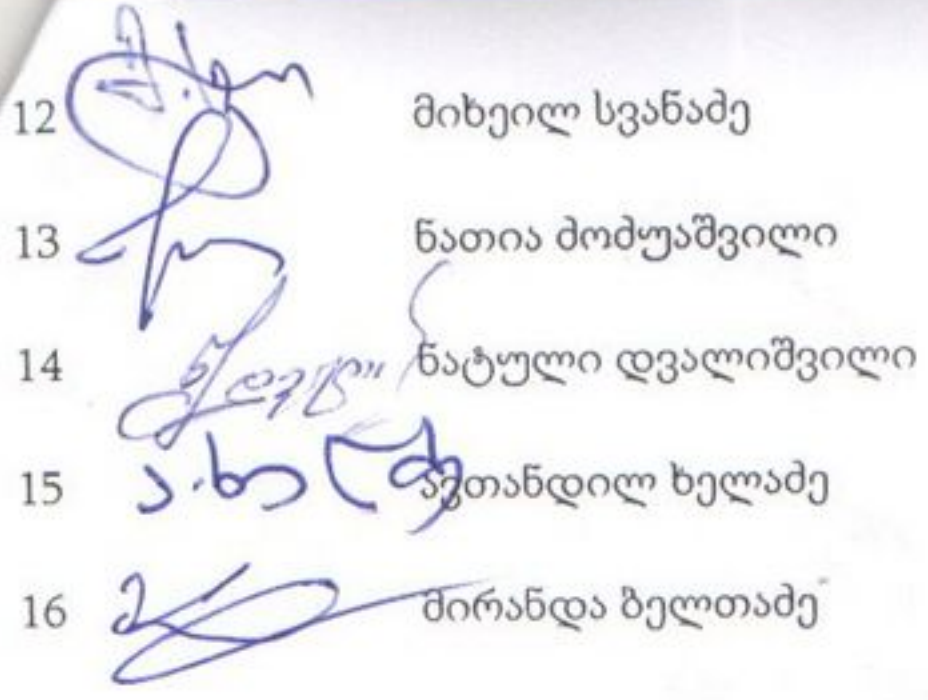 12 მიხეილ სვანაძე
13 ნათია ძოძუაშვილი
14 ნატული დვალიშვილი
15 ავთანდილ ხელაძე
16 მირანდა ბელთაძე